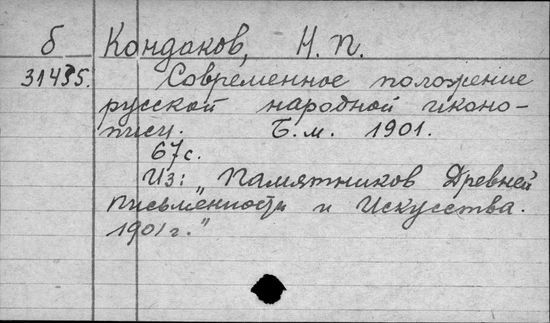 б Кондаков, Н. П.
31435. Современное положение
русской народной иконо-
писи. Б.м. 1901.
67с.
Из: „Памятников Древней
письменности и Искусства.
1901г."